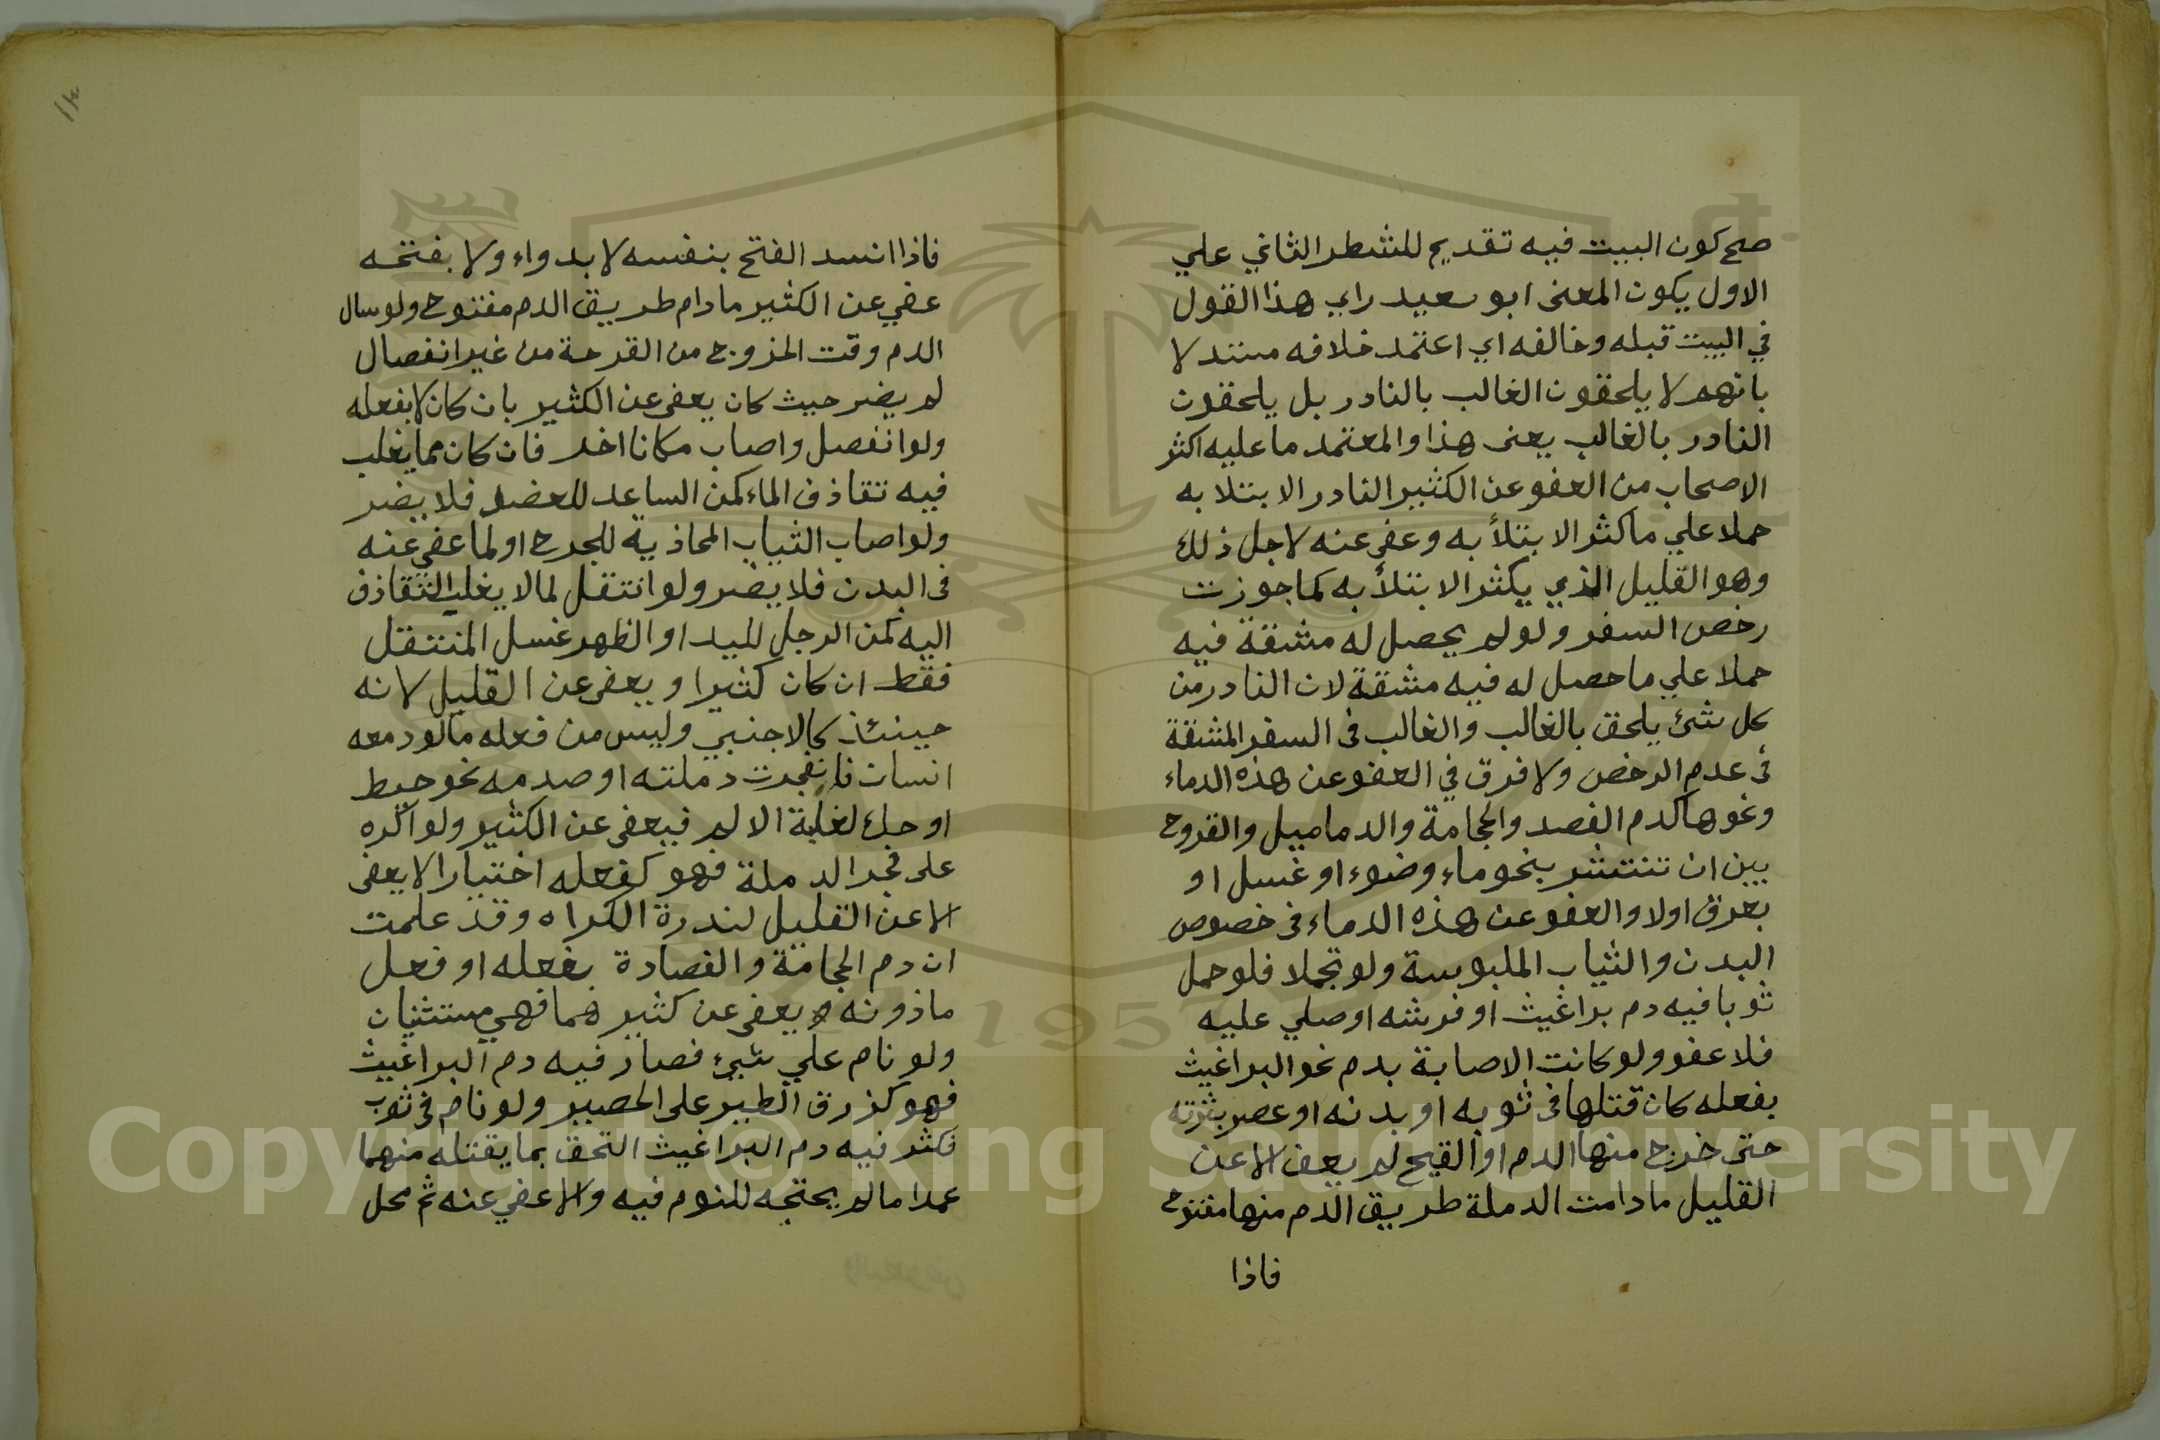 صح كون البيت فيه تقديم للشطر الثاني علي
الاول يكون المعنى ابو سعيد راي هذا القول
في البيت قبله وخالفه اي اعتمد خلافه مستدلا
بانهم لا يلحقون الغالب بالنادر بل يلحقون
النادر بالغالب يعنى هذا والمعتمد ما عليه اكثر
الاصحاب من العفو عن الكثير النادر الابتلا به
حملا علي ما كثر الابتلأ به وعفي عنه لاجل ذلك
وهو القليل الذي يكثر الابتلأ به كما جوزت
رخص السفر ولو لم يحصل له مشقة فيه
حملا علي ما حصل له فيه مشقة لان النادر من
كل شئ يلحق بالغالب والغالب فى السفر المشقة
فى عدم الرخص ولا فرق في العفو عن هذه الدماء
ونحوها كدم الفصد والحجامة والدماميل والقروح
بين ان تنتشر بنحو ماء وضوء او غسل او
بعرق اولا والعفو عن هذه الدماء فى خصوص
البدن والثياب الملبوسة ولو تجملا فلو حمل
ثوبا فيه دم براغيث او فرشه او صلي عليه
فلا عفو ولو كانت الاصابة بدم نحو البراغيث
بفعله كان قتلها فى ثوبه او بدنه او عصر بثرته
حتى خرج منها الدم او القيح لم يعف الا عن
القليل ما دامت الدملة طريق الدم منها مفتوح
فاذا
فاذا انسد الفتح بنفسه لا بدواء ولا بفتحه
عفي عن الكثير ما دام طريق الدم مفتوح ولو سال
الدم وقت الخروج من القرحة من غير انفصال
لم يضر حيث كان يعفى عن الكثير بان كان لا بفعله
ولو انفصل واصاب مكانا اخر فان كان مما يغلب
فيه تقاذف الماء كمن الساعد للعضد فلا يضر
ولو اصاب الثياب المحاذية للجرح او لما عفي عنه
فى البدن فلا يضر ولو انتقل لما لا يغلب التقاذف
اليه كمن الرجل لليد او الظهر غسل المنتقل
فقط ان كان كثيرا ويعفى عن القليل لانه
حينئذ كالاجنبي وليس من فعله ما لو دمعه
انسان فانفجرت دملته او صدمه نحو حيط
او حك لغلبة الالم فيعفى عن الكثير ولو اكره
على فجر الدملة فهو كفعله اختيارا لا يعفى
الا عن القليل لندرة الكراه وقد علمت
ان دم الحجامة والفصادة بفعله او فعل
ماذونه ويعفى عن كثيرهما فهي مستثنيان
ولو نام علي شيء فصار فيه دم البراغيث
فهو كزرق الطير على الحصير ولو نام فى ثوب
فكثر فيه دم البراغيث التحق بما يقتله منهما
عمدا ما لم يحتجه للنوم فيه والا عفي عنه ثم محل
Copyright © King Saud University
1957